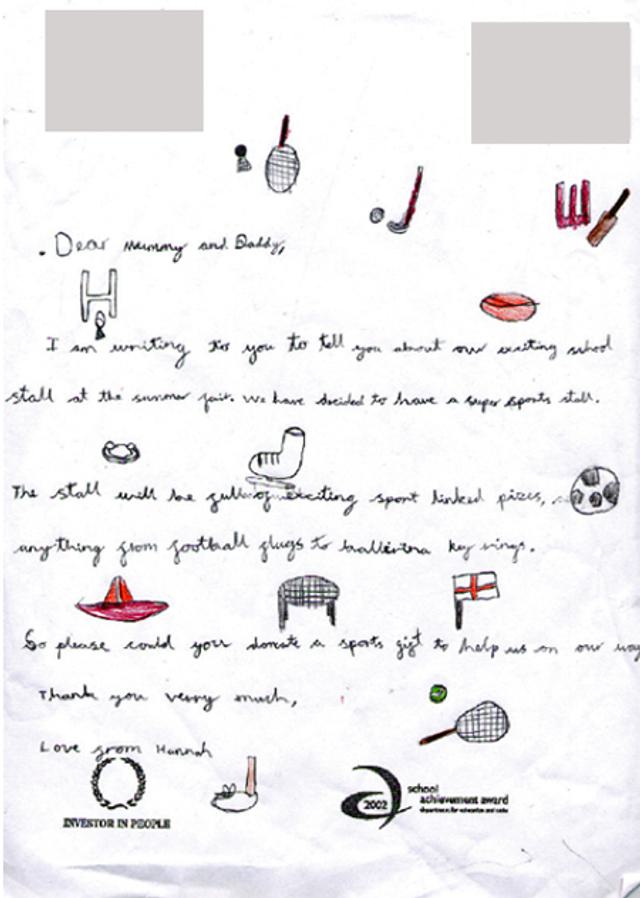 . Dear Mummy and Daddy,
I am writing to you to tell you about our exciting school
stall at the summer fair. We have decided to have a super sports stall.
The stall will be full of exciting sport linked pizes,
anything from football flugs to ballerina key rings.
So please could you donate a sports gift to help us on our way
Thank you verry much,
Love from Hannah
INVESTOR IN PEOPLE
2002
school
achievement award
department for education and skills